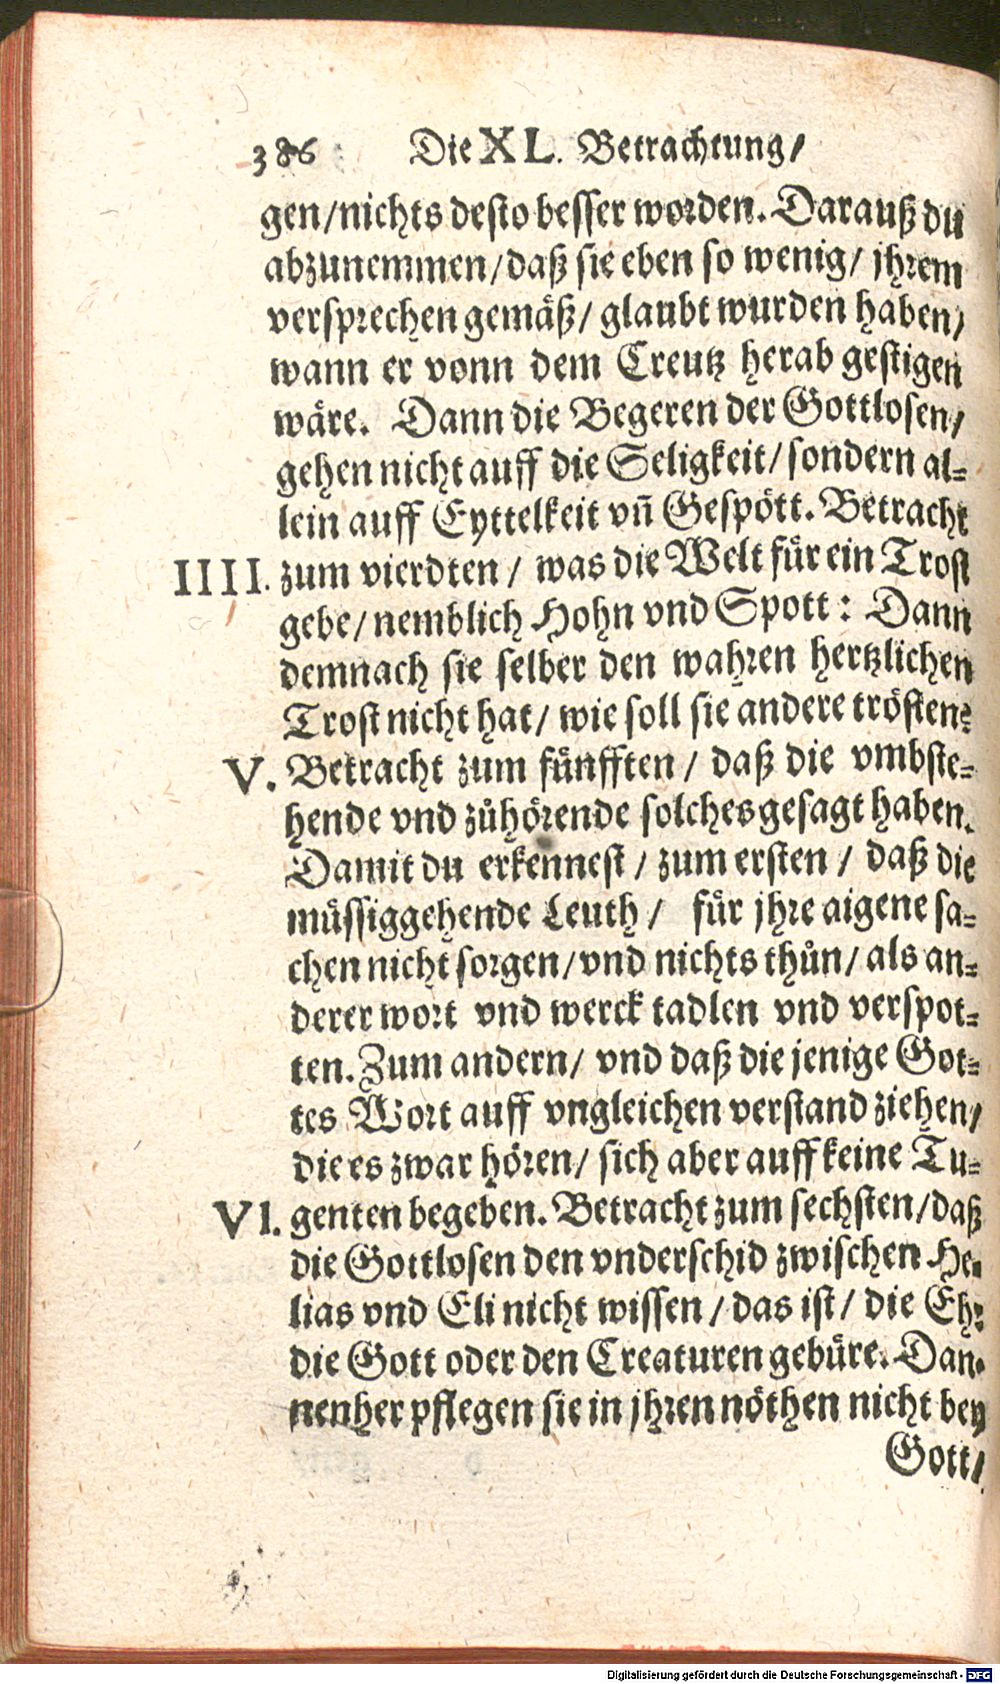 386 Die XL. Betrachtung/
gen/nichts desto besser worden. Darauß du
abzunemmen/daß sie eben so wenig/ jhrem
versprechen gemäß/ glaubt wurden haben/
wann er vonn dem Creutz herab gestigen
wäre. Dann die Begeren der Gottlosen/
gehen nicht auff die Seligkeit/ sondern al-
lein auff Eyttelkeit vñ Gespött. Betracht
IIII. zum vierdten / was die Welt für ein Trost
gebe/ nemblich Hohn vnd Spott: Dann
demnach sie selber den wahren hertzlichen
Trost nicht hat/ wie soll sie andere trösten?
V. Betracht zum fünfften / daß die vmbste-
hende vnd zůhörende solches gesagt haben.
Damit du erkennest / zum ersten / daß die
müssiggehende Leuth / für jhre aigene sa-
chen nicht sorgen/vnd nichts thůn/ als an-
derer wort vnd werck tadlen vnd verspot-
ten. Zum andern/ vnd daß die jenige Got-
tes Wort auff vngleichen verstand ziehen/
die es zwar hören/ sich aber auff keine Tu-
VI. genten begeben. Betracht zum sechsten/daß
die Gottlosen den vnderschid zwischen He-
lias vnd Eli nicht wissen / das ist/ die Ehr
die Gott oder den Creaturen gebüre. Dan-
nenher pflegen sie in jhren nöthen nicht bey
Gott/
Digitalisierung gefördert durch die Deutsche Forschungsgemeinschaft - DFG